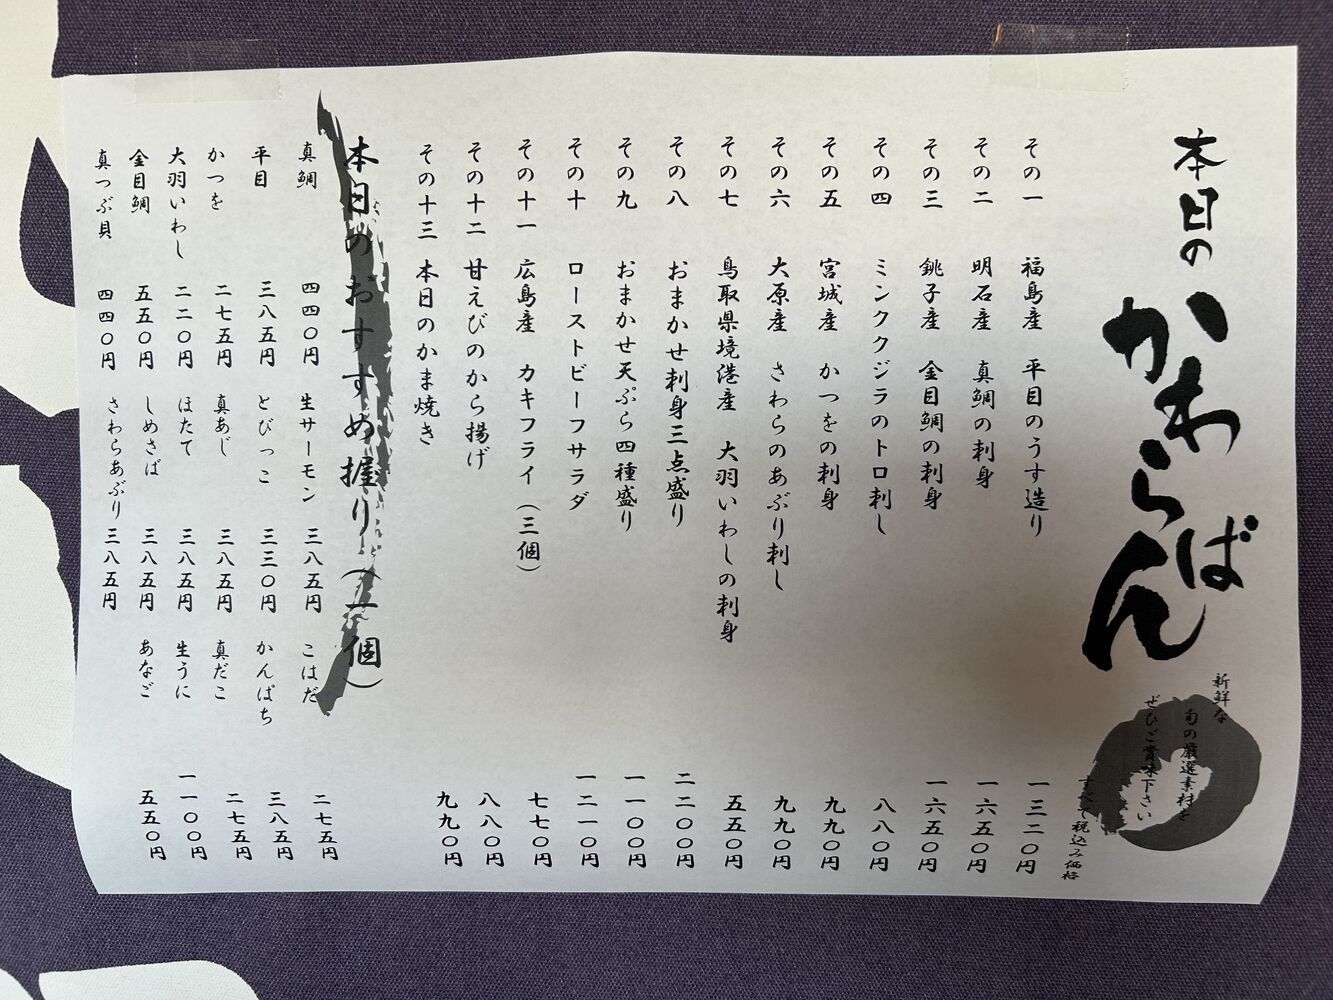 本日のかわら ばん
新鮮な
旬の厳選素材を
ぜひご賞味下さい
すべて税込み価格
その一 福島産 平目のうす造り 一三二〇円
その二 明石産 真鯛の刺身 一六五〇円
その三 銚子産 金目鯛の刺身 一六五〇円
その四 ミンククジラのトロ刺し 八八〇円
その五 宮城産 かつをの刺身 九九〇円
その六 大原産 さわらのあぶり刺し 九九〇円
その七 鳥取県境港産 大羽いわしの刺身 五五〇円
その八 おまかせ刺身三点盛り 二二〇〇円
その九 おまかせ天ぷら四種盛り 一一〇〇円
その十 ローストビーフサラダ 一二一〇円
その十一 広島産 カキフライ(三個) 七七〇円
その十二 甘えびのから揚げ 八八〇円
その十三 本日のかま焼き 九九〇円
本日のおすすめ握り(一個)
真鯛 四四〇円 生サーモン 三八五円 こはだ 二七五円
平目 三八五円 とびっこ 三三〇円 かんぱち 三八五円
かつを 二七五円 真あじ 三八五円 真だこ 二七五円
大羽いわし 二二〇円 ほたて 三八五円 生うに 一一〇〇円
金目鯛 五五〇円 しめさば 三八五円 あなご 五五〇円
真つぶ貝 四四〇円 さわらあぶり 三八五円